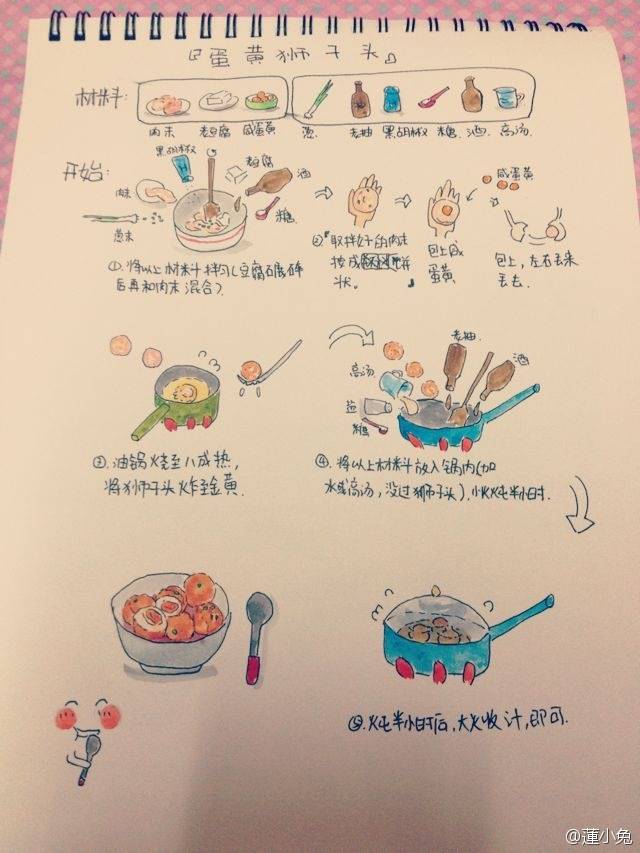 『蛋黄狮子头』
材料:
肉末 老豆腐 咸蛋黄 葱. 老抽 黑胡椒 糖. 酒. 高汤.
开始:
黑胡椒
老豆腐
酒
肉末
葱末
糖.
①.将以上材料拌匀(豆腐碾碎
后再和肉末混合)
②取拌好的肉末
按成 饼
状。
包上咸
蛋黄
咸蛋黄
包上,左右丢来
丢去.
③.油锅烧至八成热,
将狮子头炸至金黄.
高汤
盐
糖
老抽
酒
④.将以上材料放入锅内(加
水或高汤,没过狮子头).小火炖半小时.
⑤.炖半小时后,大火收汁,即可.
@蓮小兔